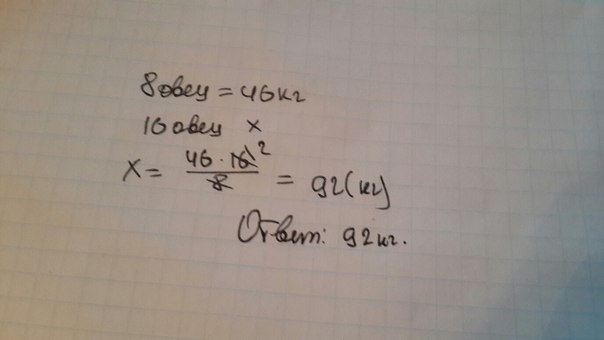 8 овец = 46 кг
16 овец х
х = 46 · 16 2 / 8 = 92 (кг)
Ответ: 92 кг.